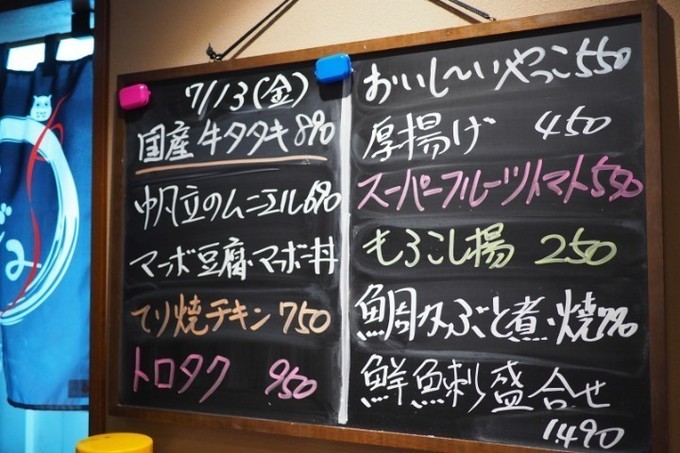 7/13(金)
国産牛タタキ890
帆立のムニエル690
マーボ豆腐・マーボ丼
てり焼チキン750
トロタク 950
おいし～いやっこ550
厚揚げ 450
スーパーフルーツトマト550
もろこし揚 250
鯛かぶと煮・焼790
鮮魚刺盛合せ
1.490